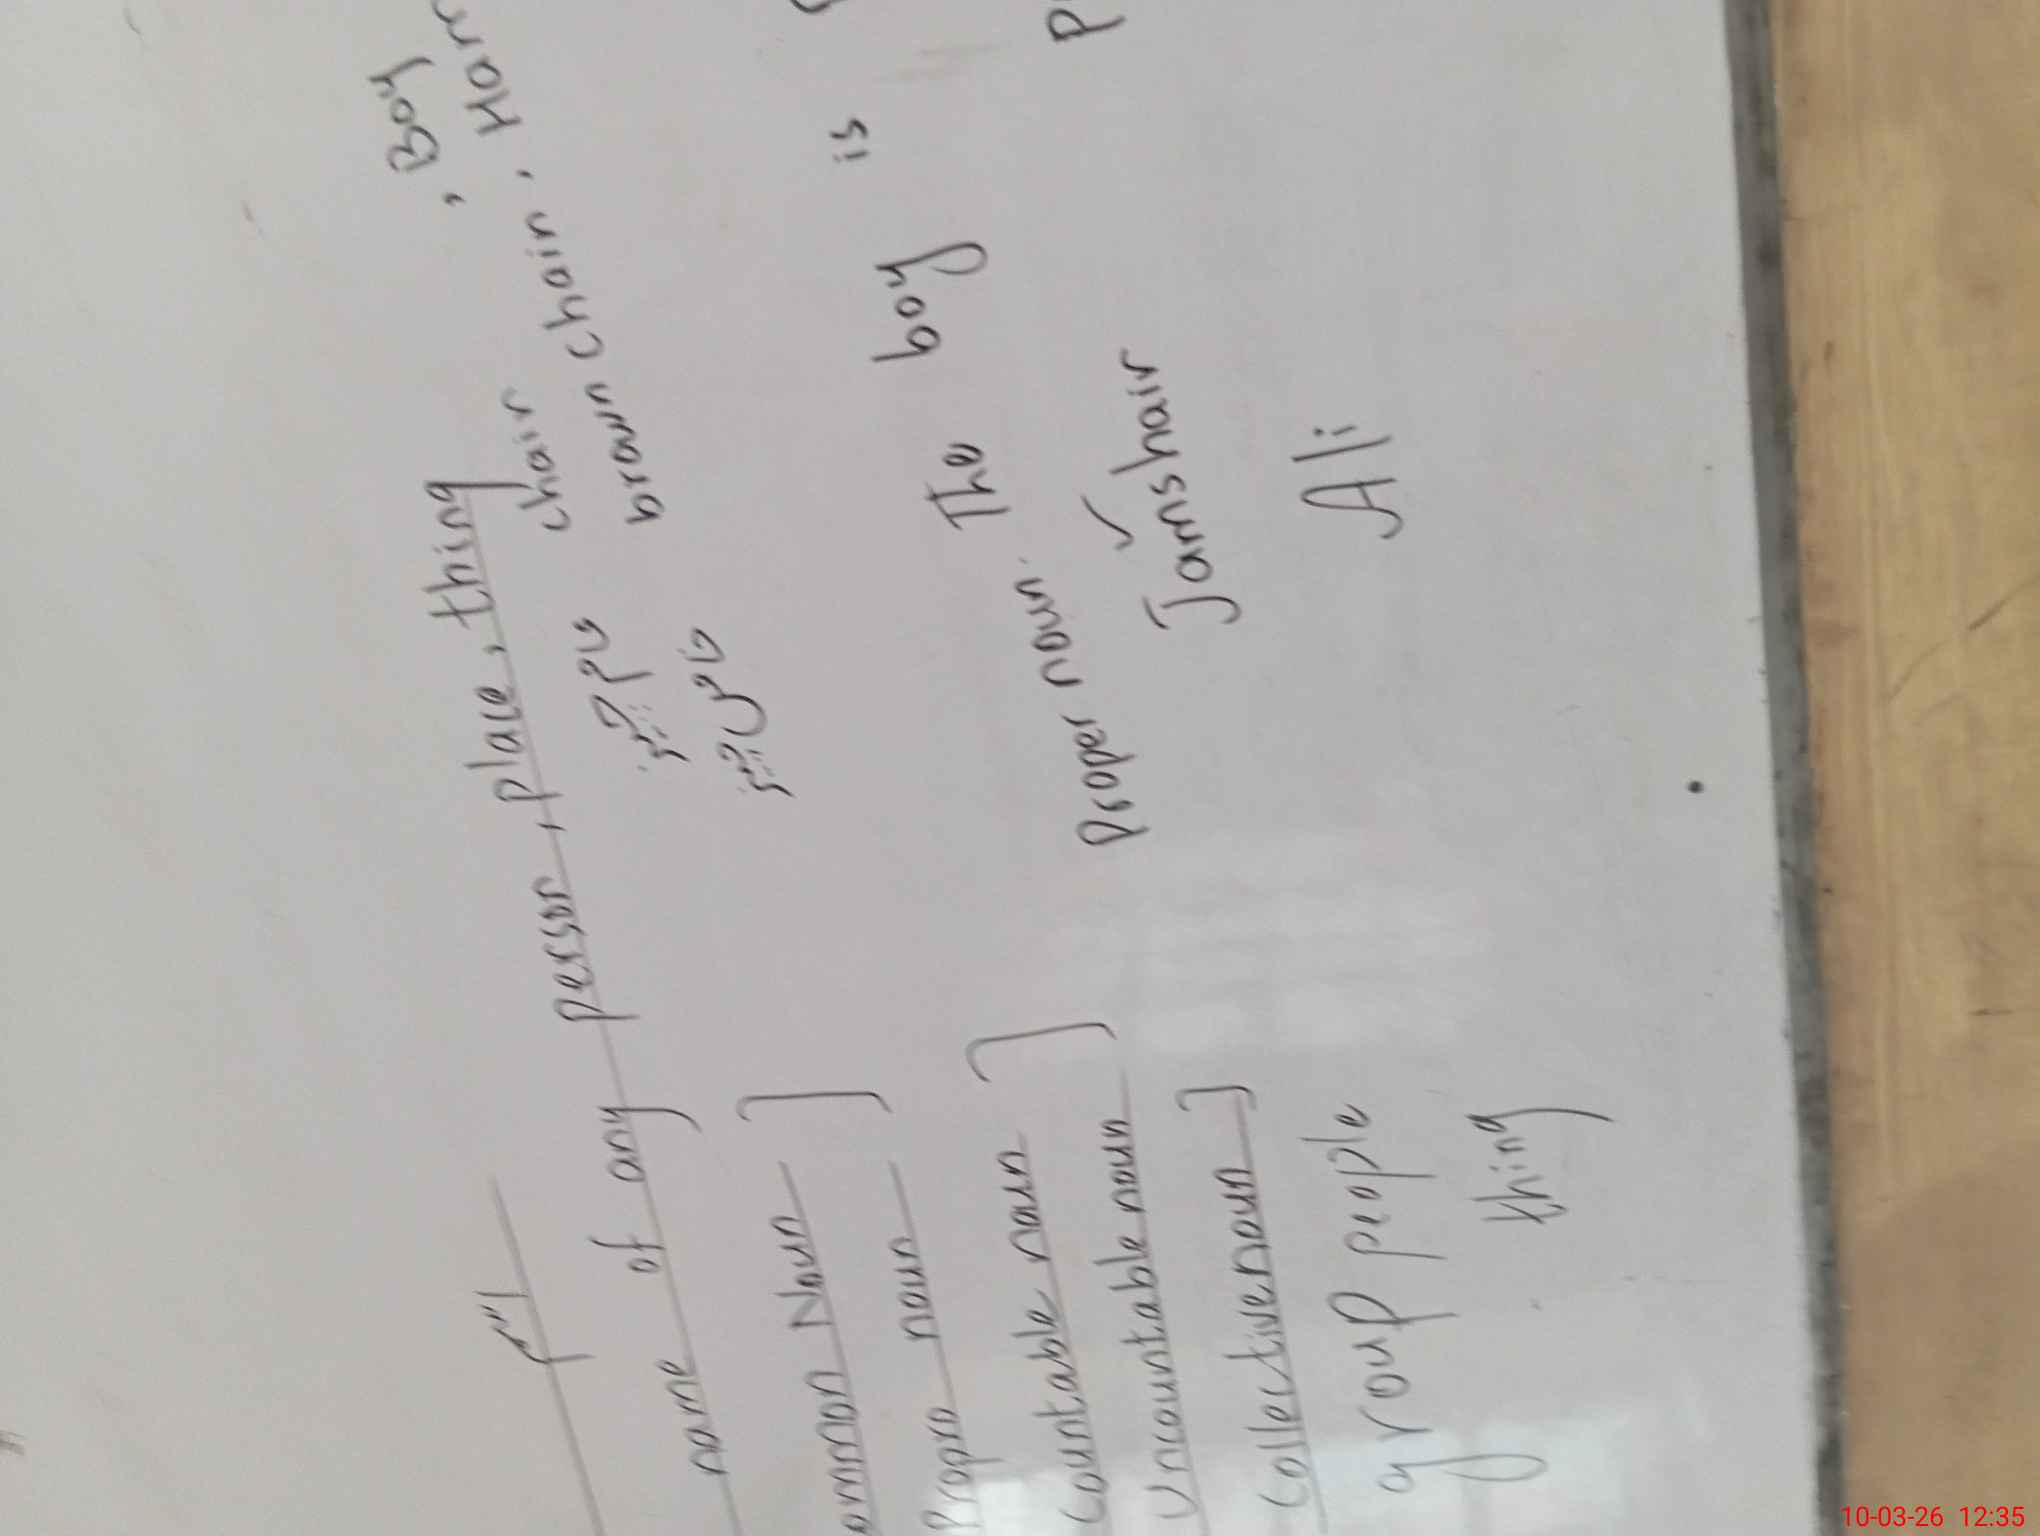 اسم
name of any person, place, thing
, Boy
chair
عام چیز
brown chair, Ham
خاص چیز
ommon Noun
Propro noun
The boy is
Countable noun
Proper noun.
Uncountable noun
Jamshair
Collective noun
Ali
group people
thing
10-03-26 12:35